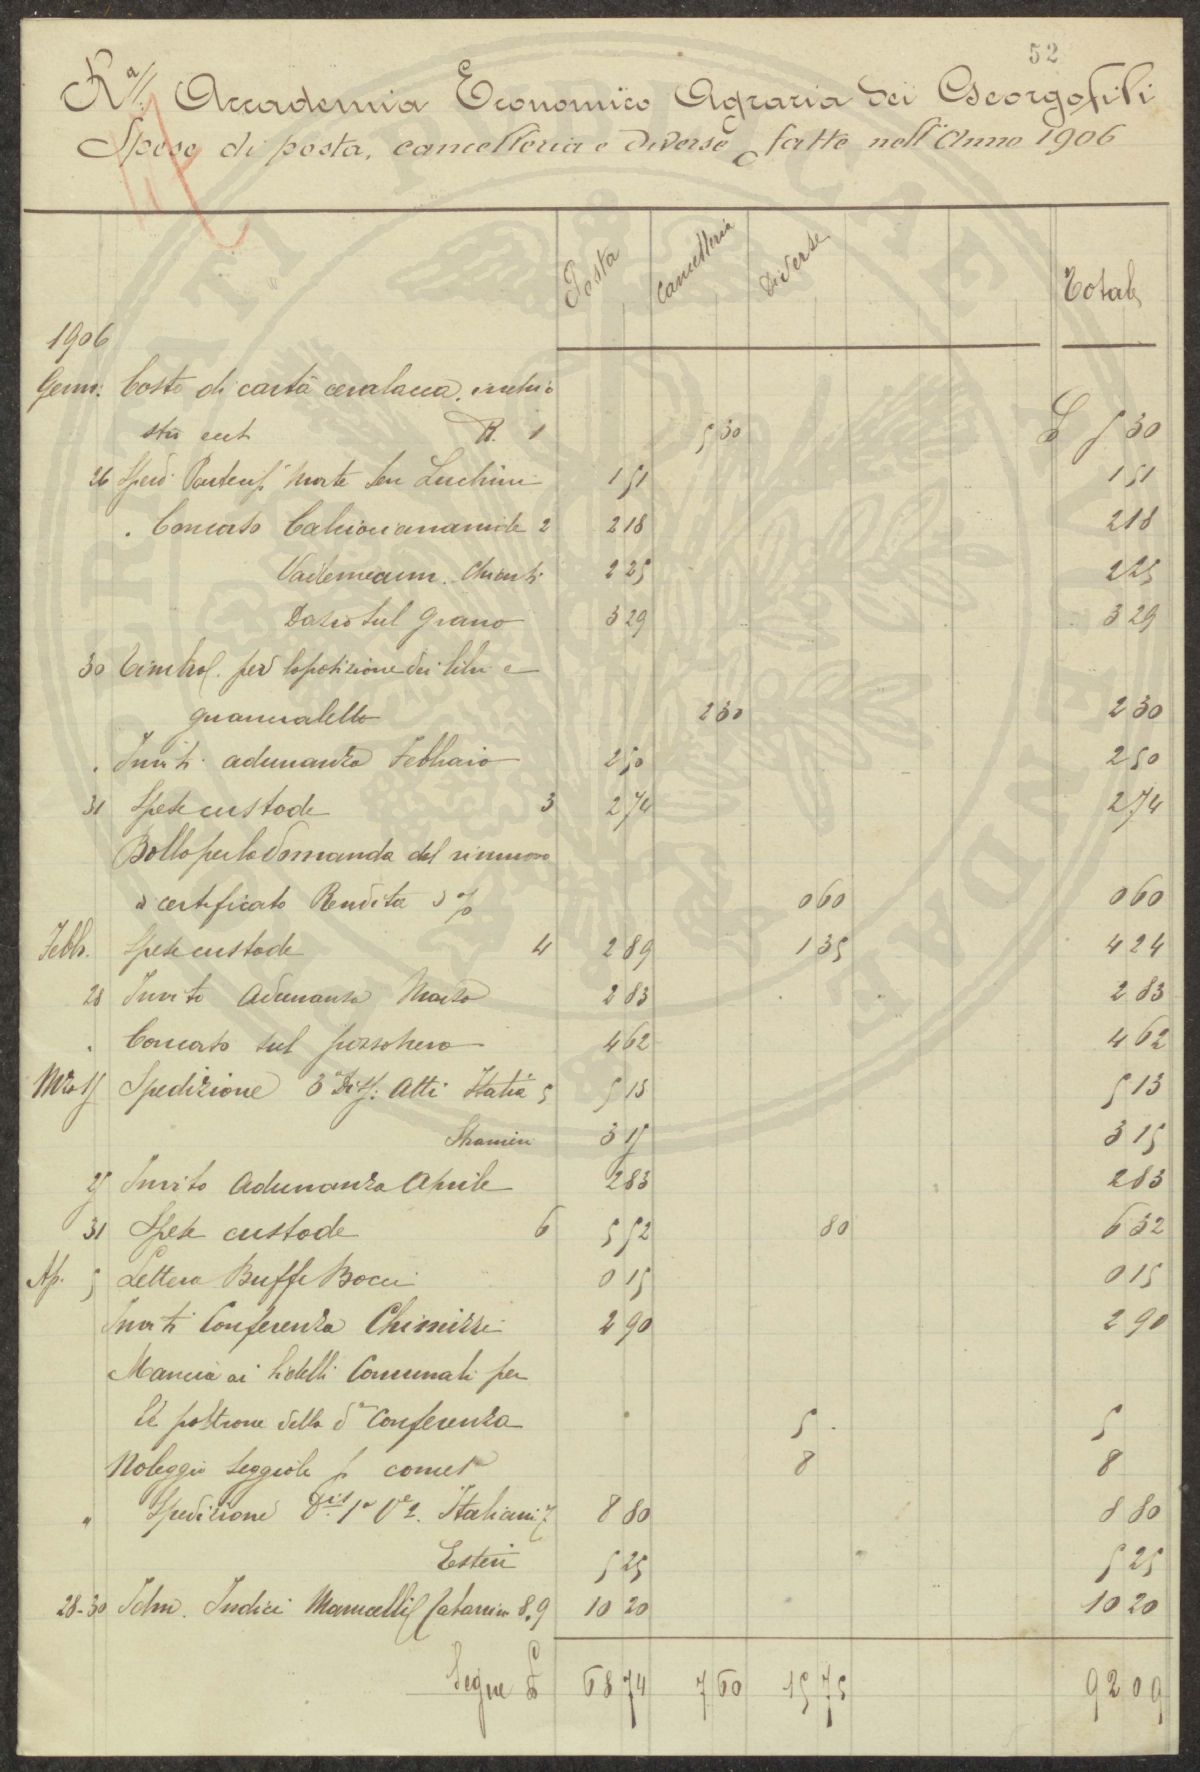 52
R.a Accademia Economico Agraria dei Georgofili
Spese di posta, cancelleria e diverse fatte nell'Anno 1906
Posta Cancelleria Diverse Totale
1906
Genn: Costo di carta ceralacca, inchio
stro ecct R. 1 5 30 £ 5 30
26 Sped. Partecip. Morte Sen Luchini 1 51 1 51
Concorso Calciocianamide 2 2 18 2 18
Vademecum Chianti 2 25 2 25
Dazio sul grano 3 29 3 29
30 2 30 2 30
" Inviti adunanza Febbraio 2 50 2 50
31 Spese custode 3 2 74 2 74
Bollo per la domanda del rinnovo
certificato Rendita 5 % 0 60 0 60
Febb. Spese custode 4 2 89 1 35 4 24
28 Invito Adunanza Marzo 2 83 2 83
" Concorso sul 4 62 4 62
Mzo 15 Spedizione 3a Disp: Atti Italia 5 5 13 5 13
3 15 3 15
25 Invito Adunanza Aprile 2 83 2 83
31 Spese custode 6 5 52 80 6 32
Ap. 5 Lettera Buffi Bocci 0 15 0 15
Inviti Conferenza Chimizzi 2 90 2 90
Mancia ai bidelli Comunali per
le poltrone della da Conferenza 5 5
Noleggio seggiole p 8 8
" Spedizione Dis 1a Italiani 7 8 80 8 80
Esteri 5 25 5 25
28-30 Idm. Indici 8,9 10 20 10 20
Segue £ 68 74 7 60 15 75 92 09